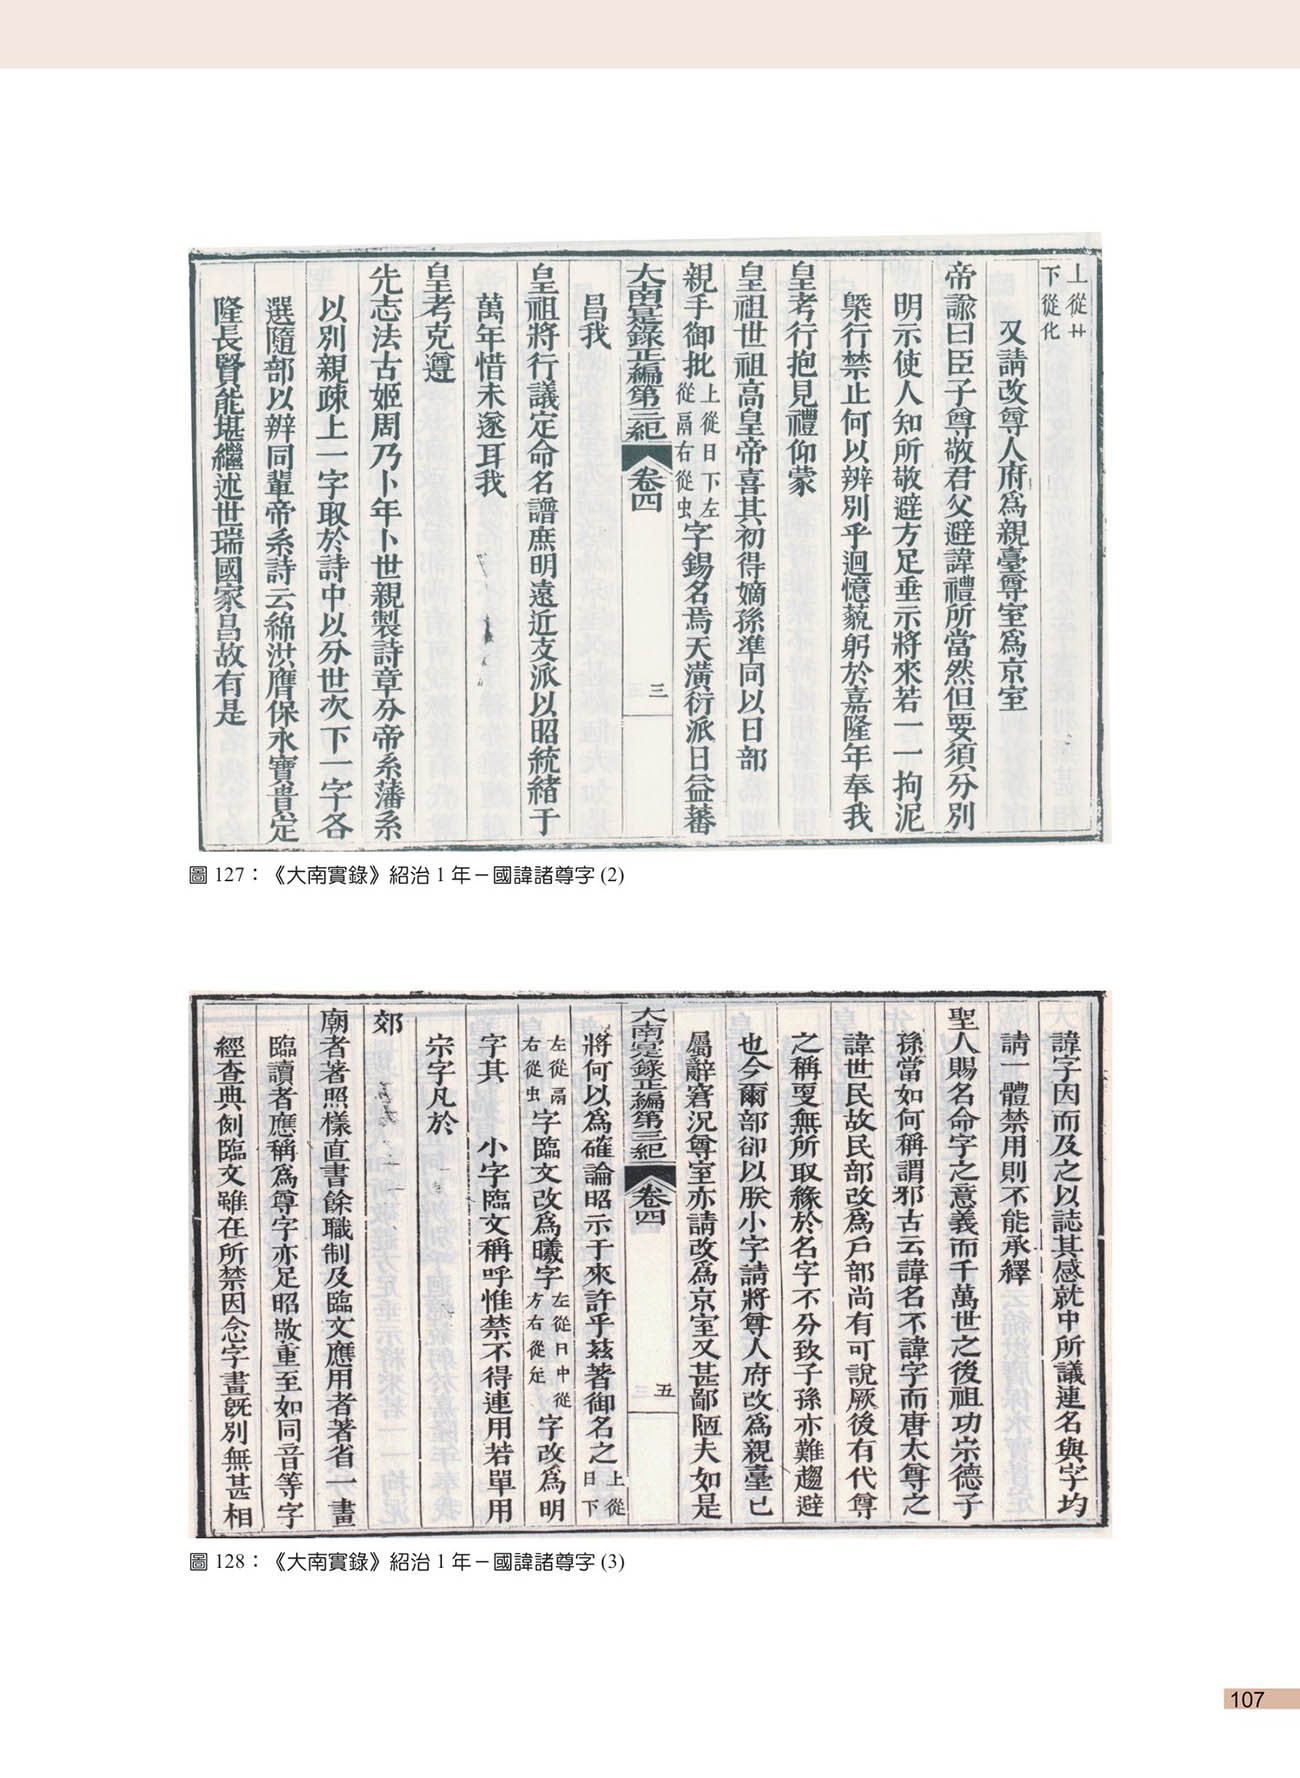 上從廾
下從化
又請改尊人府爲親臺尊室爲京室
帝諭曰臣子尊敬君父避諱禮所當然但要須分別
明示使人知所敬避方足垂示將來若一一拘泥
槩行禁止何以辨別乎迴憶藐躬於嘉隆年奉我
皇考行抱見禮仰蒙
皇祖世祖高皇帝喜其初得嫡孫準同以日部
親手御批上從日下左從鬲右從虫字錫名焉天潢衍派日益蕃
大南寔錄正編第三紀 卷四 三
昌我
皇祖將行議定命名譜庶明遠近支派以昭統緒于
萬年惜未遂耳我
皇考克遵
先志法古姬周乃卜年卜世親製詩章分帝系藩系
以別親疎上一字取於詩中以分世次下一字各
選隨部以辨同輩帝系詩云綿洪膺保永寶貴定
隆長賢能堪繼述世瑞國家昌故有是
圖 127：《大南實錄》紹治 1 年－國諱諸尊字 (2)
諱字因而及之以誌其感就中所議連名與字均
請一體禁用則不能承繹
聖人賜名命字之意義而千萬世之後祖功宗德子
孫當如何稱謂邪古云諱名不諱字而唐太尊之
諱世民故民部改爲戶部尚有可說厥後有代尊
之稱更無所取緣於名字不分致子孫亦難趨避
也今爾部卻以朕小字請將尊人府改爲親臺已
屬辭窘況尊室亦請改爲京室又甚鄙陋夫如是
大南寔錄正編第三紀 卷四 五
將何以爲確論昭示于來許乎茲著御名之上從日下
左從鬲右從虫字臨文改爲曦字左從日中從方右從㐌字改爲明
字其 小字臨文稱呼惟禁不得連用若單用
宗字凡於
郊
廟者著照樣直書餘職制及臨文應用者著省一畫
臨讀者應稱爲尊字亦足昭敬重至如同音等字
經查典例臨文雖在所禁因念字畫旣別無甚相
圖 128：《大南實錄》紹治 1 年－國諱諸尊字 (3)
107